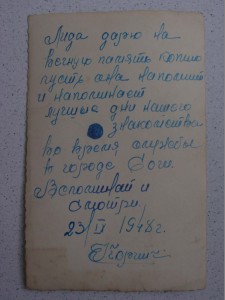 Лида дарю на
вечную память копию
пусть она напомнит
и напоминает
лучшие дни нашего
знакомства
во время службы
в городе Сочи
Вспоминай и
смотри
23/II 1948 г.